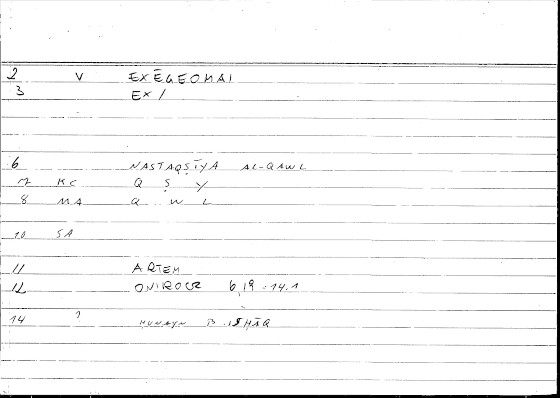 2 V EXĒGEOMAI
3 EX /
6 NASTAQṢĪYA AL-QAWL
7 KC Q Ṣ Y
8 MA Q W L
10 SA
11 ARTEM
12 ONIROCR 6,19 - 14.1
14 ? ḤUNAYN B. ISḤĀQ